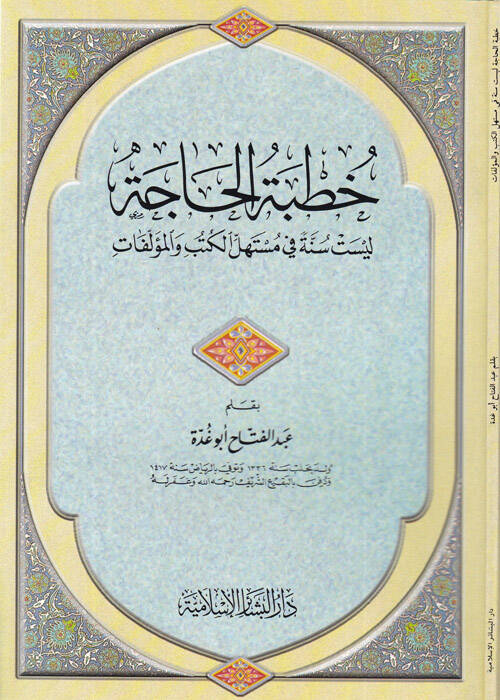 خُطْبَةُ الحَاجَة
لَيْسَتْ سُنَّةً فِي مُسْتَهَلِّ الكُتُبِ وَالمُؤَلَّفَاتِ
بقلم
عبد الفتاح أبو غُدّة
وُلد بحلب سنة ١٣٣٦ وتوفي بالرياض سنة ١٤١٧
ودُفن بالبقيع الشريف رحمه الله وغفر له
دار البشائر الإسلامية
خطبة الحاجة ليست سنة في مستهل الكتب والمؤلفات
بقلم عبد الفتاح أبو غدة
دار البشائر الإسلامية